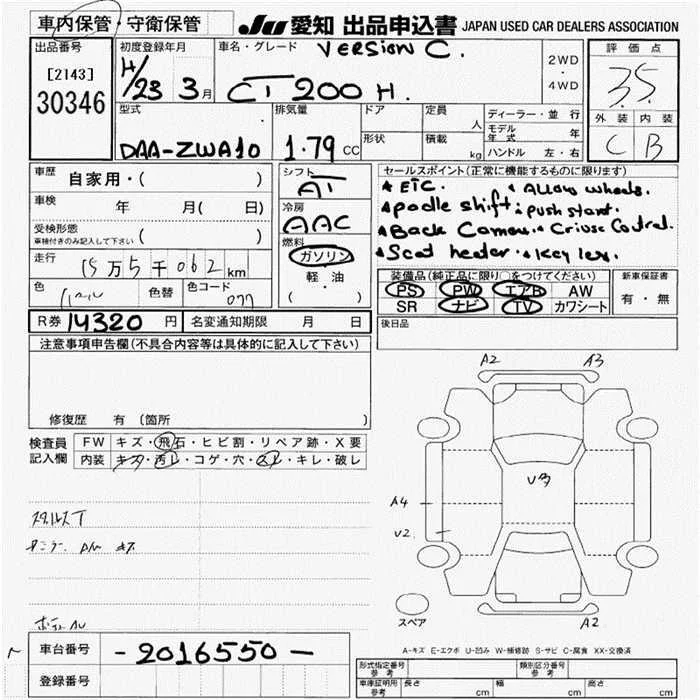 車内保管・守衛保管
JU 愛知 出品申込書 JAPAN USED CAR DEALERS ASSOCIATION
出品番号
[2143]
30346
初度登録年月
H/23 3月
車名・グレード
VERSION C.
CT 200 H.
2WD
・
4WD
評価点
3.5
外装 内装
C B
型式
DAA-ZWA10
排気量
1.79 CC
ドア
形状
定員 人
積載 kg
ディーラー・並行
モデル年式 年
ハンドル 左・右
車歴 自家用・( )
車検 年 月( 日)
受検形態
車検付きのみ記入して下さい ( )
走行 15万5千062km
色
色替
色コード 077
シフト
AT
冷房
AAC
燃料
ガソリン
軽・油
・
( )
セールスポイント(正常に機能するものに限ります)
ETC. Alloy wheels.
Padle shift Push start.
Back Camera. Criuse Control.
Seat heater. Key less.
装備品(純正品に限り○をつけてください)
PS PW エアB AW
SR ナビ TV カワシート
新車保証書
有・無
R券 14320 円
名変通知期限 月 日
後日品
注意事項申告欄(不具合内容等は具体的に記入して下さい)
修復歴 有(箇所 )
検査員記入欄
FW キズ・飛石・ヒビ割・リペア跡・X要
内装 キズ・汚レ・コゲ・穴・スレ・キレ・破レ
A2 A3
U多
A4
U2
A2
スペア
A-キズ E-エクボ U-凹み W-補修跡 S-サビ C-腐食 XX-交換済
車台番号 -2016550-
登録番号
形式指定番号
参考
類別区分番号
参考
車庫証明用
参考
長さ cm 幅 cm 高さ cm